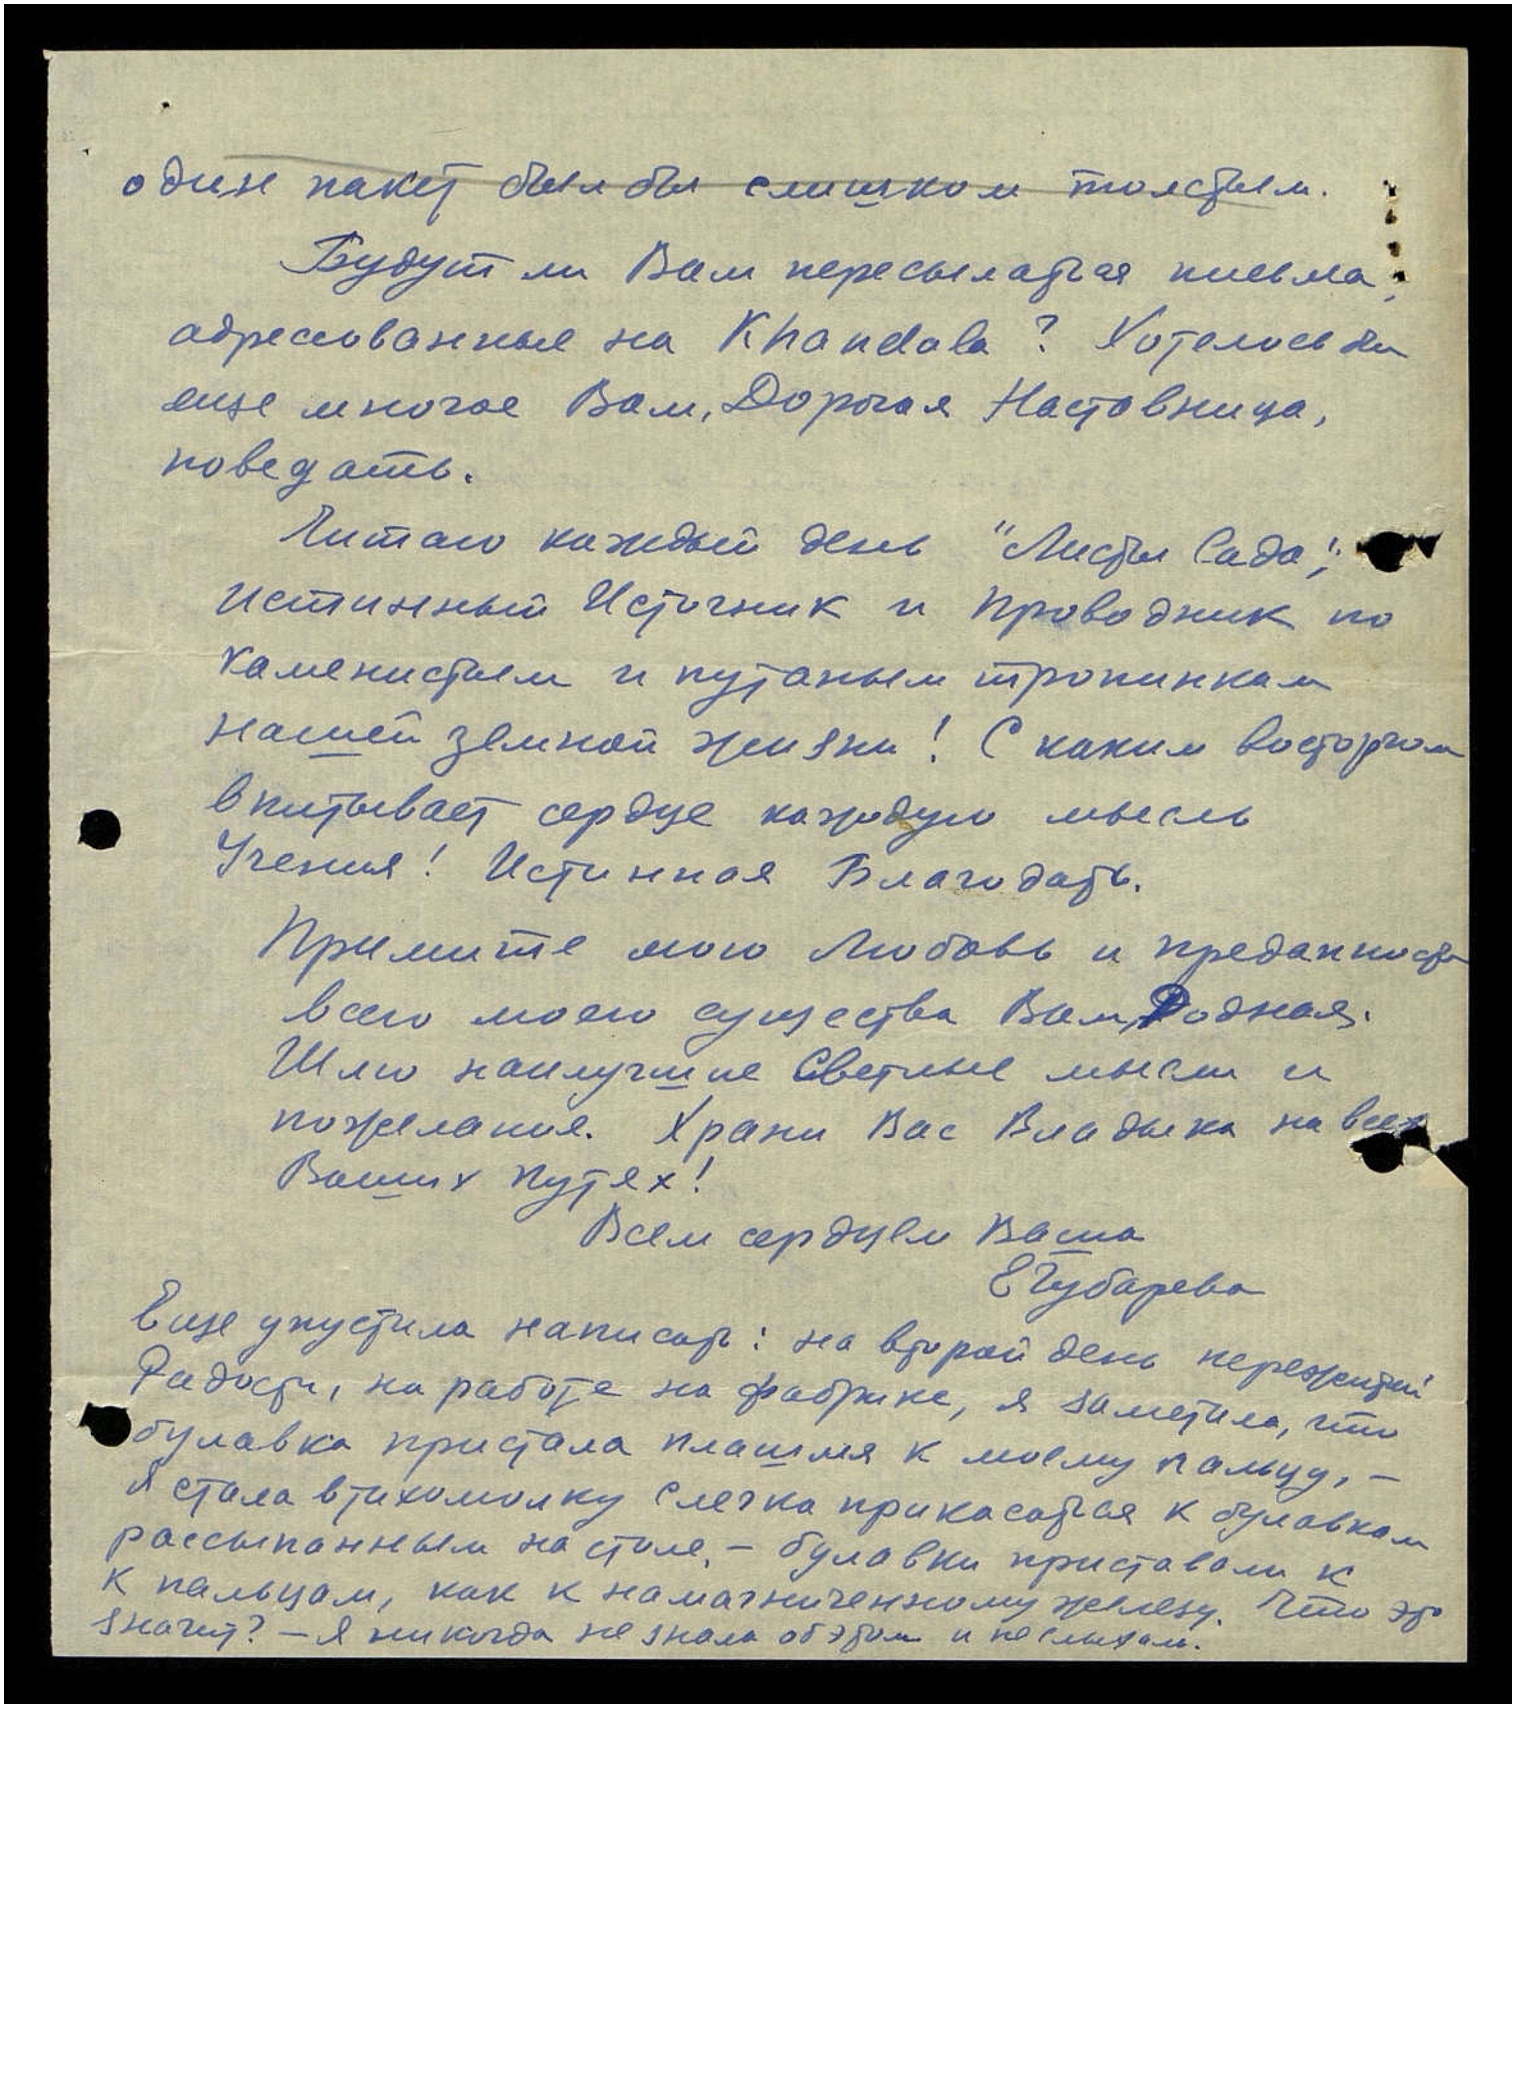 один пакет был бы слишком толстым.
Будут ли Вам пересылаться письма,
адресованные на Khandala? Хотелось бы
еще многое Вам, Дорогая Наставница,
поведать.
Читаю каждый день "Листы Сада",
истинный Источник и Проводник по
каменистым и путаным тропинкам
нашей земной жизни! С каким восторгом
впитывает сердце каждую мысль
Учения! Истинная Благодать.
Примите мою Любовь и преданность
всего моего существа Вам, Родная.
Шлю наилучшие Светлые мысли и
пожелания. Храни Вас Владыка на всех
Ваших путях!
Всем сердцем Ваша
ЕГубарева
Еще упустила написать: на второй день пережитой
Радости, на работе на фабрике, я заметила, что
булавка пристала плашмя к моему пальцу, –
я стала втихомолку слегка прикасаться к булавкам
рассыпанным на столе, – булавки приставали к
к пальцам, как к намагниченному железу. Что это
значит? – Я никогда не знала об этом и не слыхала.